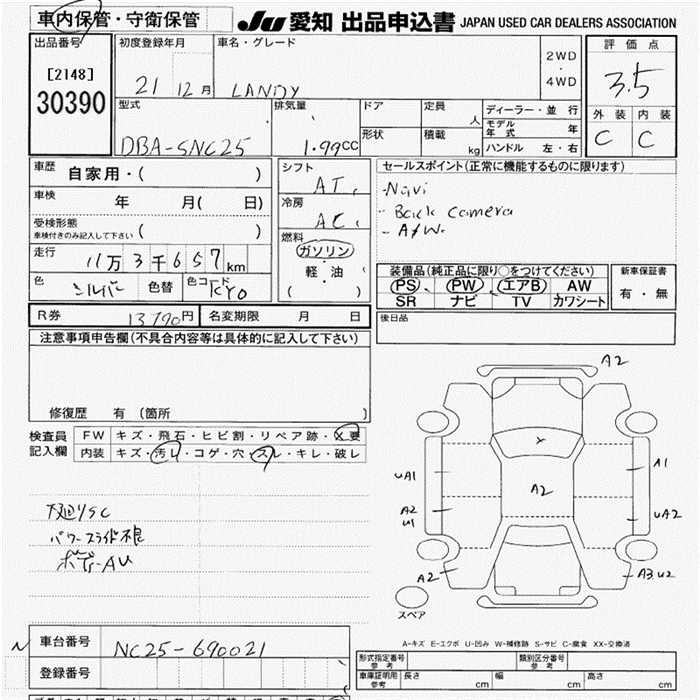 車内保管・守衛保管
JU 愛知 出品申込書 JAPAN USED CAR DEALERS ASSOCIATION
出品番号
[2148]
30390
初度登録年月
21 12月
車名・グレード
LANDY
2WD
・
4WD
評価点
3.5
外装 内装
C C
型式
DBA-SNC25
排気量
1.99CC
ドア
形状
定員
人
積載
kg
ディーラー・並行
モデル年式 年
ハンドル 左・右
車歴 自家用・( )
車検 年 月( 日)
受検形態
車検付きのみ記入して下さい ( )
走行 11万3千657km
色 シルバー 色替 色コード KY0
シフト
AT,
冷房
AC,
燃料
ガソリン
・
軽・油
( )
セールスポイント(正常に機能するものに限ります)
-Navi
- Back Camera
- A/W.
装備品(純正品に限り○をつけてください)
PS PW エアB AW
SR ナビ TV カワシート
新車保証書
有・無
R券 13790円 名変期限 月 日
後日品
注意事項申告欄(不具合内容等は具体的に記入して下さい)
修復歴 有 (箇所 )
検査員
記入欄
FW キズ・飛石・ヒビ割・リペア跡・X要
内装 キズ・汚レ・コゲ・穴・スレ・キレ・破レ
下廻りSC
パワースライド不良
ボディーAU
A2
UA1
A1
A2
A2
U1
UA2
A2
A3.U2
スペア
A-キズ E-エクボ U-凹み W-補修跡 S-サビ C-腐食 XX-交換済
車台番号 NC25-690021
登録番号
形式指定番号
参考
類別区分番号
参考
車庫証明用
参考
長さ cm 幅 cm 高さ cm